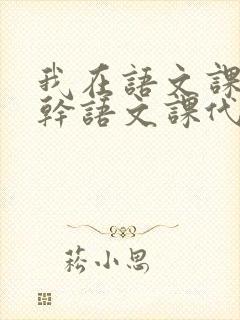 我在語文課
幹語文課代
菘小思